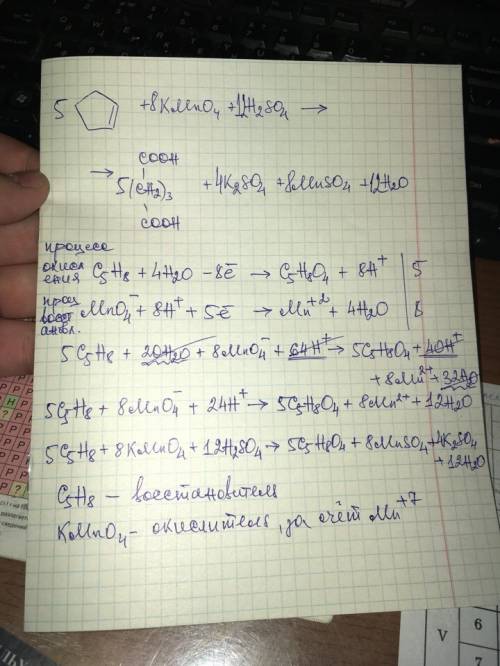 5 + 8KMnO₄ + 12H₂SO₄ →
COOH
→ 5(CH₂)₃ + 4K₂SO₄ + 8MnSO₄ + 12H₂O
COOH
процесс
окисл
ения C₅H₈ + 4H₂O - 8ē → C₅H₈O₄ + 8H⁺ | 5
проц
восст
ановл. MnO₄⁻ + 8H⁺ + 5ē → Mn⁺² + 4H₂O | 8
5C₅H₈ + 20H₂O + 8MnO₄⁻ + 64H⁺ → 5C₅H₈O₄ + 40H⁺
+ 8Mn²⁺ + 32H₂O
5C₅H₈ + 8MnO₄⁻ + 24H⁺ → 5C₅H₈O₄ + 8Mn²⁺ + 12H₂O
5C₅H₈ + 8KMnO₄ + 12H₂SO₄ → 5C₅H₈O₄ + 8MnSO₄ + 4K₂SO₄
+ 12H₂O
C₅H₈ - восстановитель
KMnO₄ - окислитель, за счёт Mn⁺⁷
V
6
7